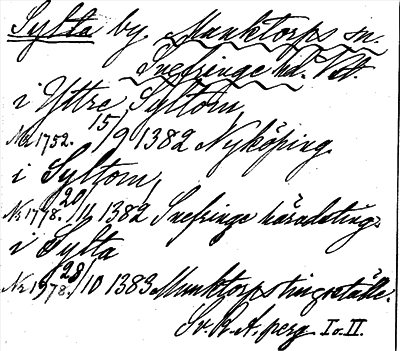 Sylta by Munktorps sn.
Snefringe hd. Vstm.
i Yttre Syltom
Nr 1752. 15/9 1382 Nyköping.
i Syltom
Nr 1778. 20/11 1382 Snefringe häradsting.
i Sylta
Nr 1978. 28/10 1383 Munktorps tingställe.
Sv. R. A. perg. I o. II.